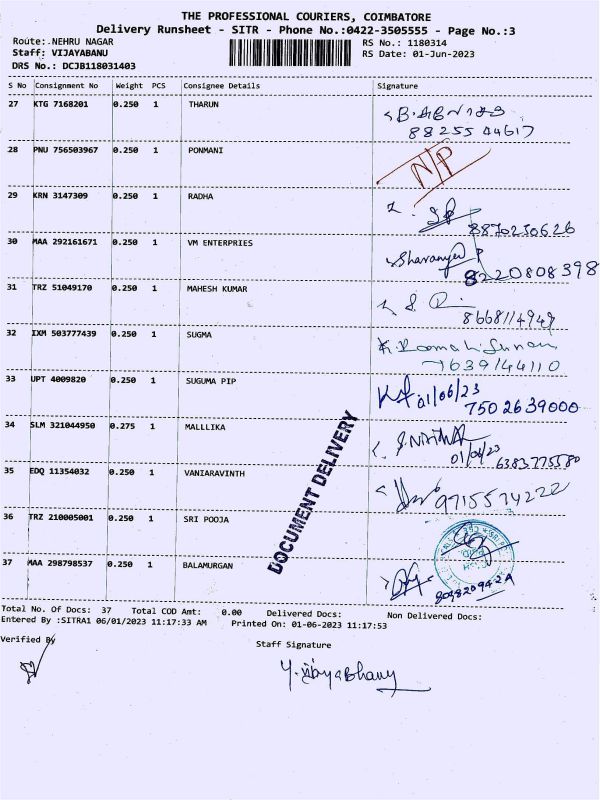 THE PROFESSIONAL COURIERS, COIMBATORE
Delivery Runsheet - SITR - Phone No.:0422-3505555 - Page No.:3
Route:.NEHRU NAGAR RS No.: 1180314
Staff: VIJAYABANU RS Date: 01-Jun-2023
DRS No.: DCJB118031403
S No Consignment No Weight PCS Consignee Details Signature
27 KTG 7168201 0.250 1 THARUN
8825544617
28 PNU 756503967 0.250 1 PONMANI N/P
29 KRN 3147309 0.250 1 RADHA
8870230626
30 MAA 292161671 0.250 1 VM ENTERPRIES Sharanya P
8220808398
31 TRZ 51049170 0.250 1 MAHESH KUMAR
8668114949
32 IXM 503777439 0.250 1 SUGMA
7639144110
33 UPT 4009820 0.250 1 SUGUMA PIP 01/06/23
7502639000
34 SLM 321044950 0.275 1 MALLLIKA
01/06/23 6383775580
35 EDQ 11354032 0.250 1 VANIARAVINTH
9715574222
36 TRZ 210005001 0.250 1 SRI POOJA
37 MAA 298798537 0.250 1 BALAMURGAN
DOCUMENT DELIVERY
Total No. Of Docs: 37 Total COD Amt: 0.00 Delivered Docs: Non Delivered Docs:
Entered By :SITRA1 06/01/2023 11:17:33 AM Printed On: 01-06-2023 11:17:53
Verified By Staff Signature
Y. Vijayabhanu